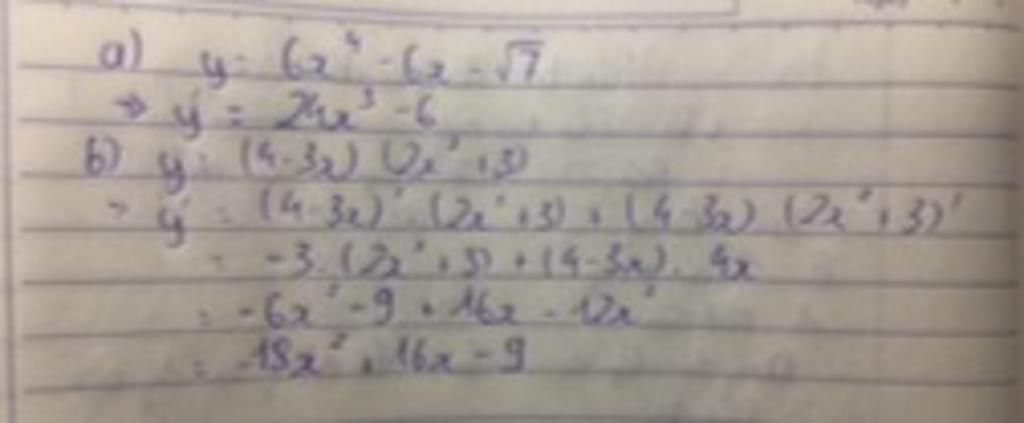 a) y = 6x⁴ - 6x - √7
=> y' = 24x³ - 6
b) y = (4-3x) (2x² + 3)
=> y' = (4-3x)' . (2x² + 3) + (4-3x) . (2x² + 3)'
= -3 . (2x² + 3) + (4-3x) . 4x
= -6x² - 9 + 16x - 12x²
= -18x² + 16x - 9